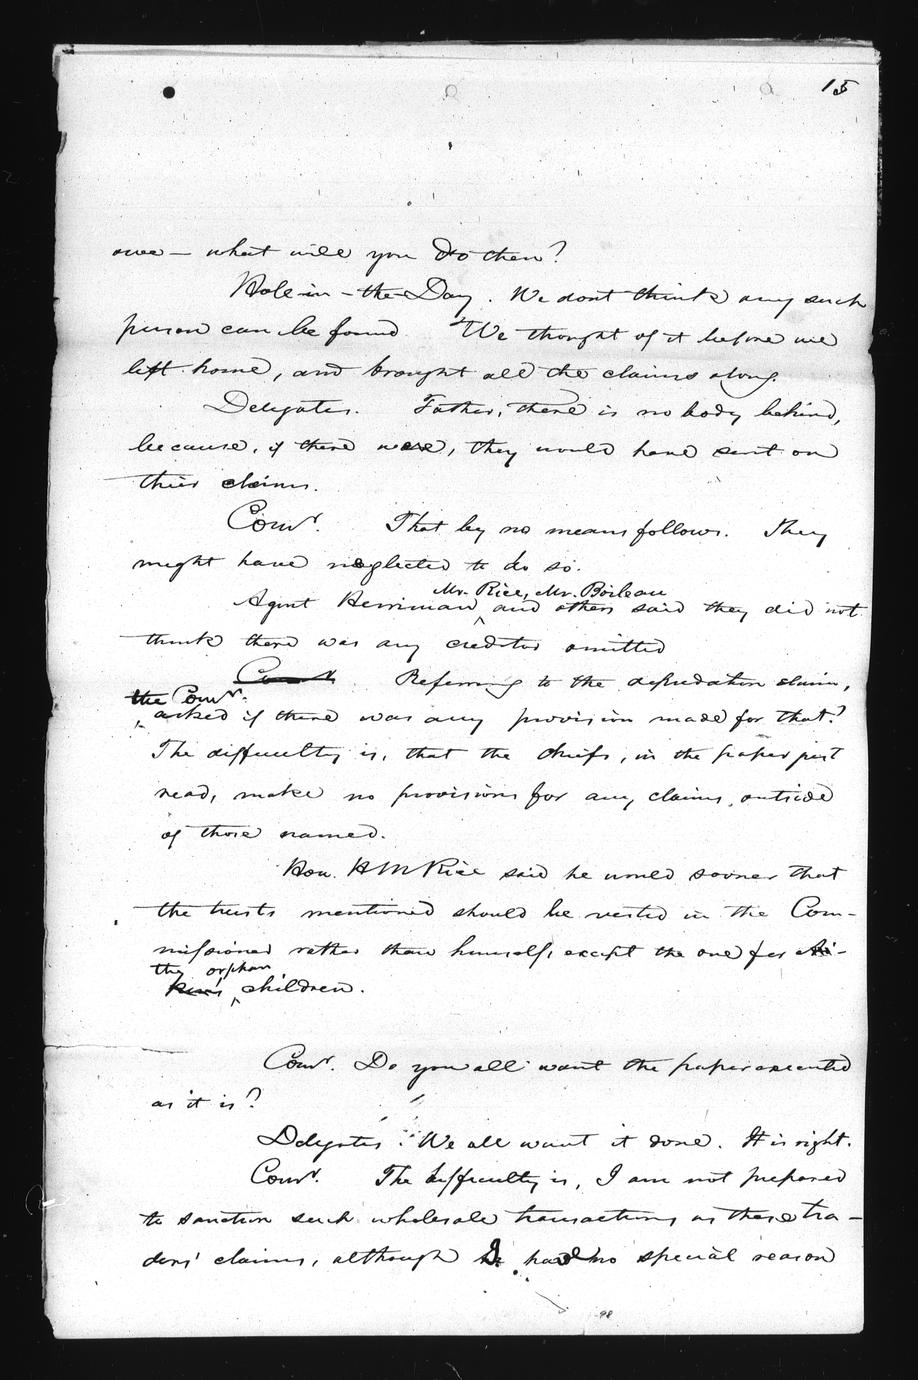 15
owe — what will you do then?
Hole-in-the-Day. We dont think any such
person can be found We thought of it before we
left home, and brought all the claims along.
Delegates. Father, there is no body behind,
because, if there were, they would have sent on
their claims.
Comr. That by no means follows. They
might have neglected to do so.
Mr. Rice, Mr. Boileau
Agent Herriman ^ and others said they did not
think there was any creditor omitted
Comr. Referring to the depredation claim,
the Comr.
^ asked if there was any provision made for that?
The difficulty is, that the chiefs, in the paper just
read, make no provisions for any claims, outside
of those named.
Hon. H M Rice said he would sooner that
the trusts mentioned should be vested in the Com-
missioner rather than himself, except the one for Ai-
the orphan
^ children.
Comr. Do you all want the paper executed
as it is?
Delegates. We all want it done. It is right.
Comr. The difficulty is, I am not prepared
to sanction such wholesale transactions as these tra-
ders' claims, although I had no special reason
98